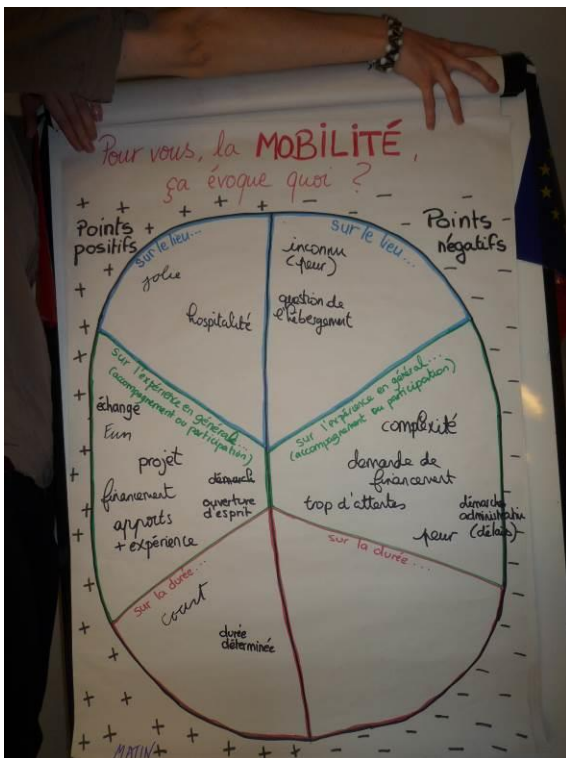 Pour vous, la MOBILITÉ,
ça évoque quoi ?
Points
positifs
sur le lieu...
jolie
hospitalité
sur le lieu...
Points
négatifs
inconnu
(peur)
question de
l'hébergement
sur l'expérience en général...
(accompagnement ou participation)
échange
Fun
projet
financement
apports
+ expérience
démarch
ouverture
d'esprit
sur l'expérience en général...
(accompagnement ou participation)
complexité
demande de
financement
trop d'attentes
démarche
(délais)
peur
sur la durée...
court
durée
déterminée
sur la durée....
MATIN